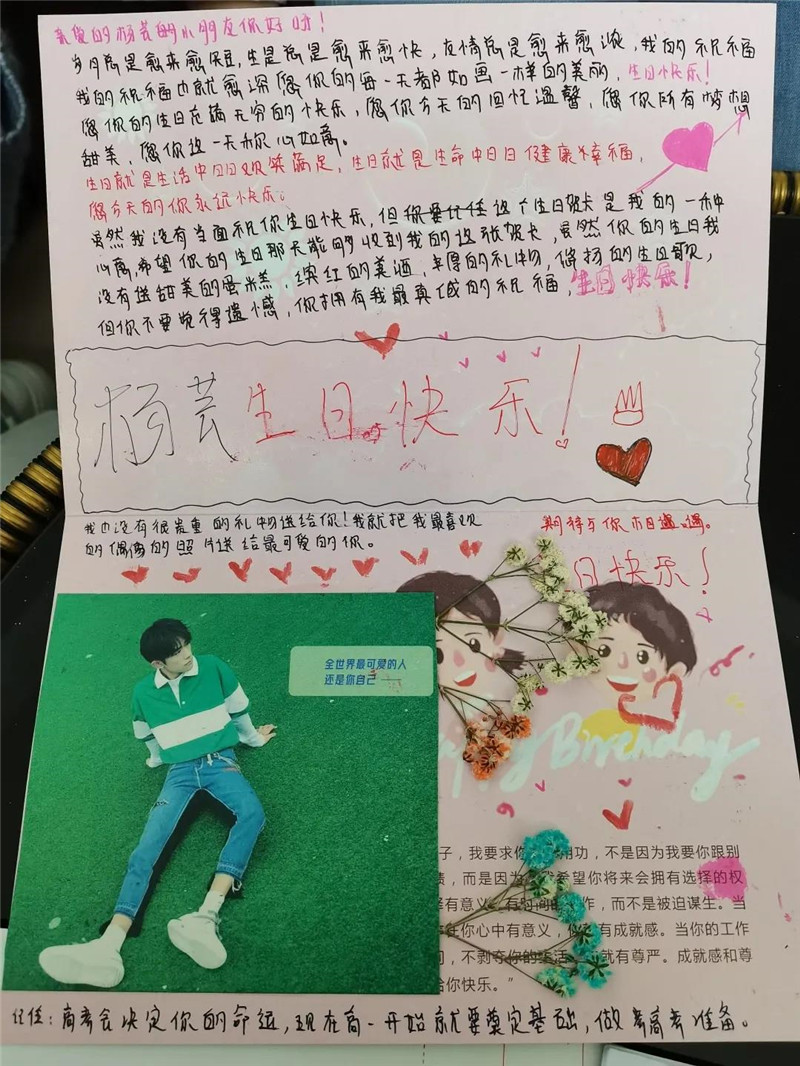 亲爱的杨芸的小朋友你好呀！
岁月总是愈来愈短，生日总是愈来愈快，友情总是愈来愈浓，我的祝福
我的祝福也就愈深愿你的每一天都如画一样的美丽，生日快乐！
愿你的生日充满无穷的快乐，愿你今天的回忆温馨，愿你所有梦想
甜美，愿你这一天称心如意。
生日就是生活中日日欢笑满足，生日就是生命中日日健康幸福，
愿今天的你永远快乐。
虽然我没有当面祝你生日快乐，但你要记住这个生日贺卡是我的一种
心意，希望你的生日那天能够收到我的这张贺卡，虽然你的生日我
没有送甜美的蛋糕，缤红的美酒，丰厚的礼物，悠扬的生日歌，
但你不要觉得遗憾，你拥有我最真诚的祝福，生日快乐！
杨芸生日快乐！
我也没有很贵重的礼物送给你！我就把我最喜欢
的偶像的照片送给最可爱的你。
期待与你日相遇。
日快乐！
全世界最可爱的人
还是你自己——
Happy Birthday
子，我要求你用功，不是因为我要你跟别
而是因为我希望你将来会拥有选择的权
有意义、有时间的工作，而不是被迫谋生。当
在你心中有意义，你就有成就感。当你的工作
不剥夺你的生活，就有尊严。成就感和尊
给你快乐。”
记住：高考会决定你的命运，现在高一开始就要奠定基础，做考高考准备。